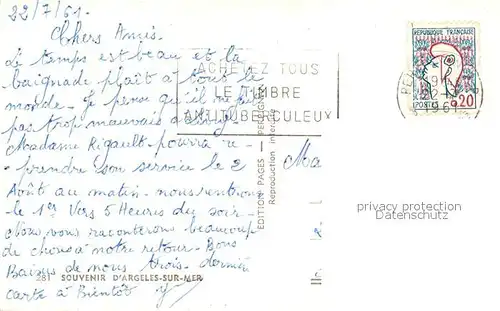 22/7/61.
Chers Amis.
Le temps est beau et la
baignade plaît à tout le
monde. Je pense qu'il ne fait
pas trop mauvais
Madame Rigault pourra re-
prendre son service le 2
Août au matin. nous rentrons
le 1er Vers 5 Heures du soir
vous raconterons beaucoup
de choses à notre retour. Bons
Baisers de nous trois. dernière
carte à Bientôt
281 SOUVENIR D'ARGELES-SUR-MER
EDITION PAGES — PERPIGNAN
Reproduction interdite
ACHETEZ TOUS
LE TIMBRE
ANTITUBERCULEUX
REPUBLIQUE FRANÇAISE
POSTES 0,20
1961
Ma
privacy protection
Datenschutz